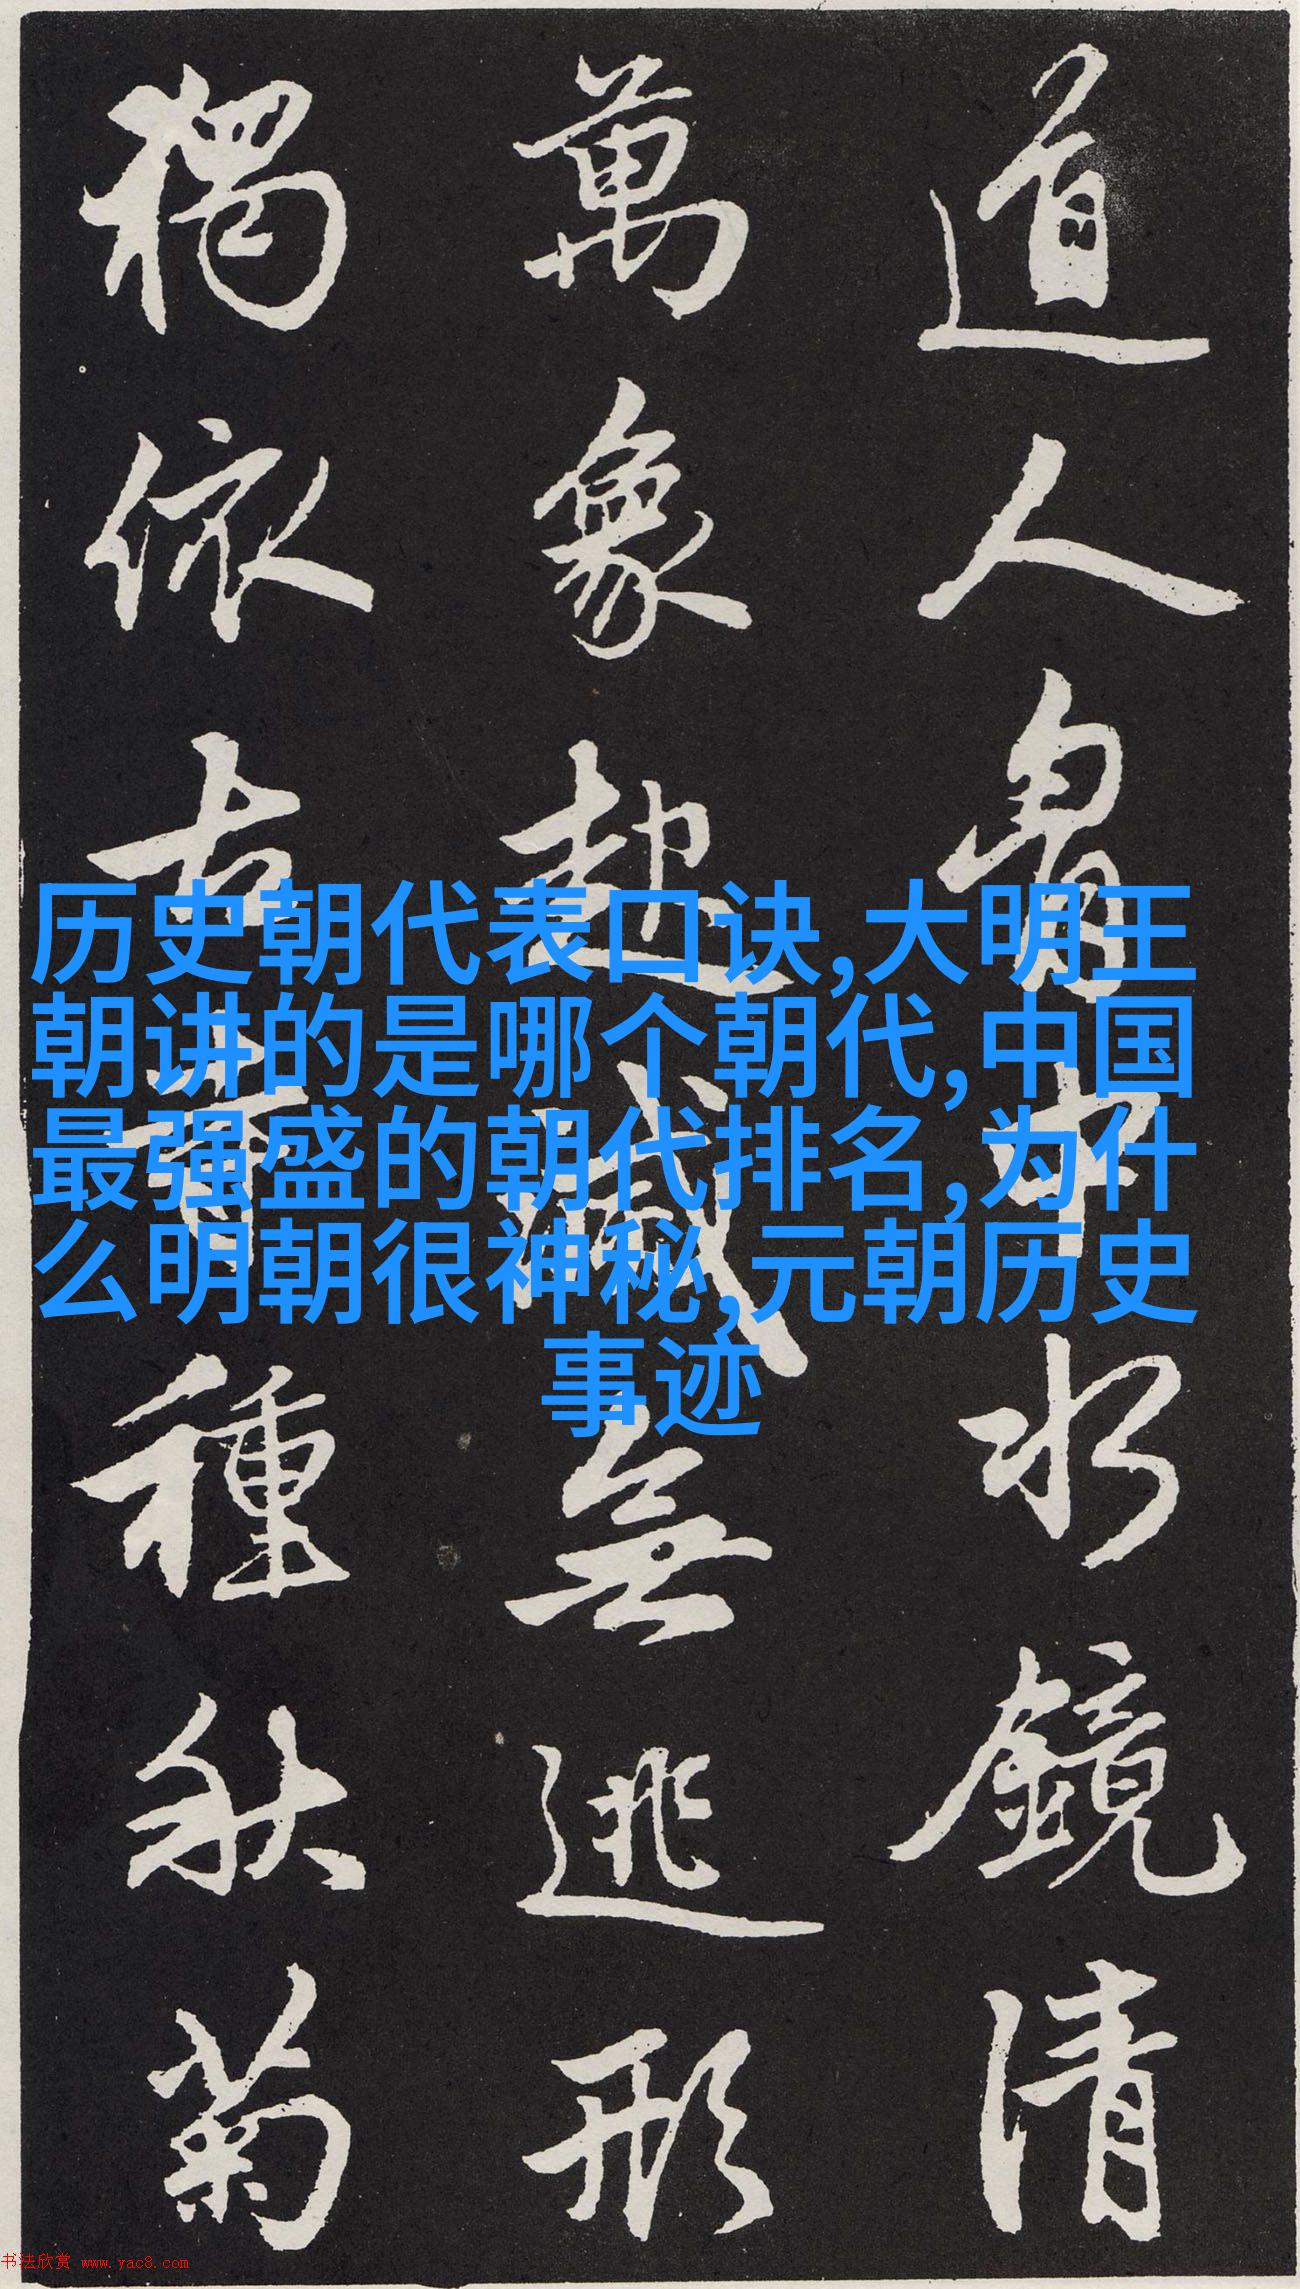 道人胷中水鏡清
萬象起滅無逃形
獨依古寺種秋菊
历史朝代表口诀,大明王
朝讲的是哪个朝代,中国
最强盛的朝代排名,为什
么明朝很神秘,元朝历史
事迹
书法欣赏 www.yac8.com